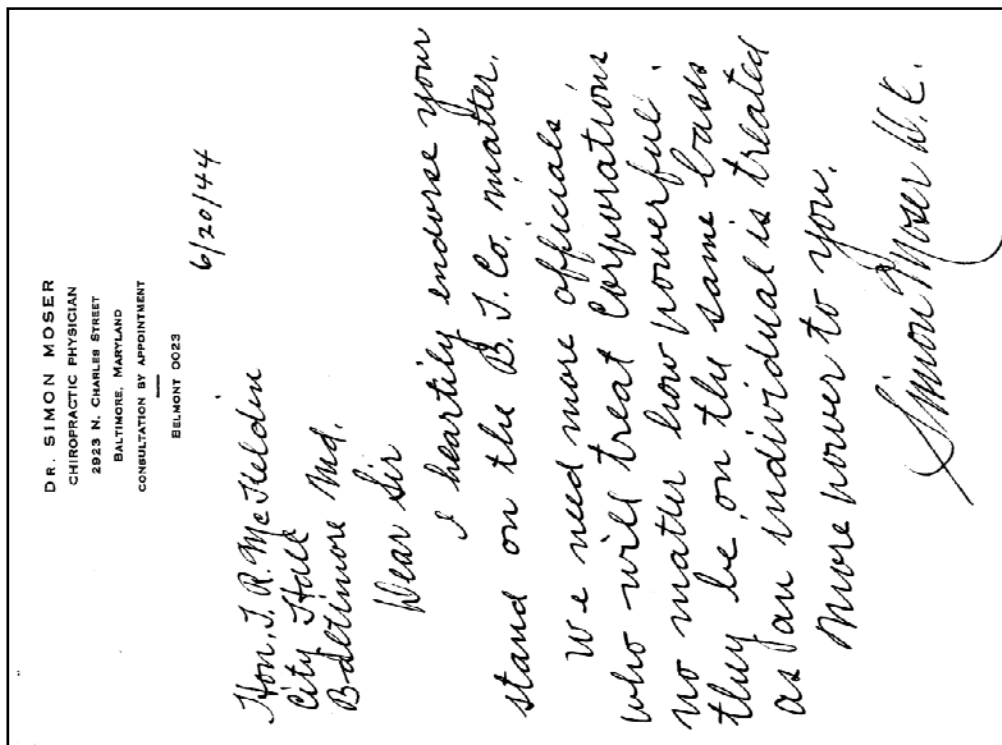 DR. SIMON MOSER
CHIROPRACTIC PHYSICIAN
2923 N. CHARLES STREET
BALTIMORE, MARYLAND
CONSULTATION BY APPOINTMENT
BELMONT 0023
6/20/44
Hon. T. R. McKeldin
City Hall
Baltimore Md.
Dear Sir
I heartily endorse your
stand on the B. T. Co. matter.
We need more officials
who will treat Corporations
no matter how powerful
they be, on the same basis
as an individual is treated
More power to you.
Simon Moser